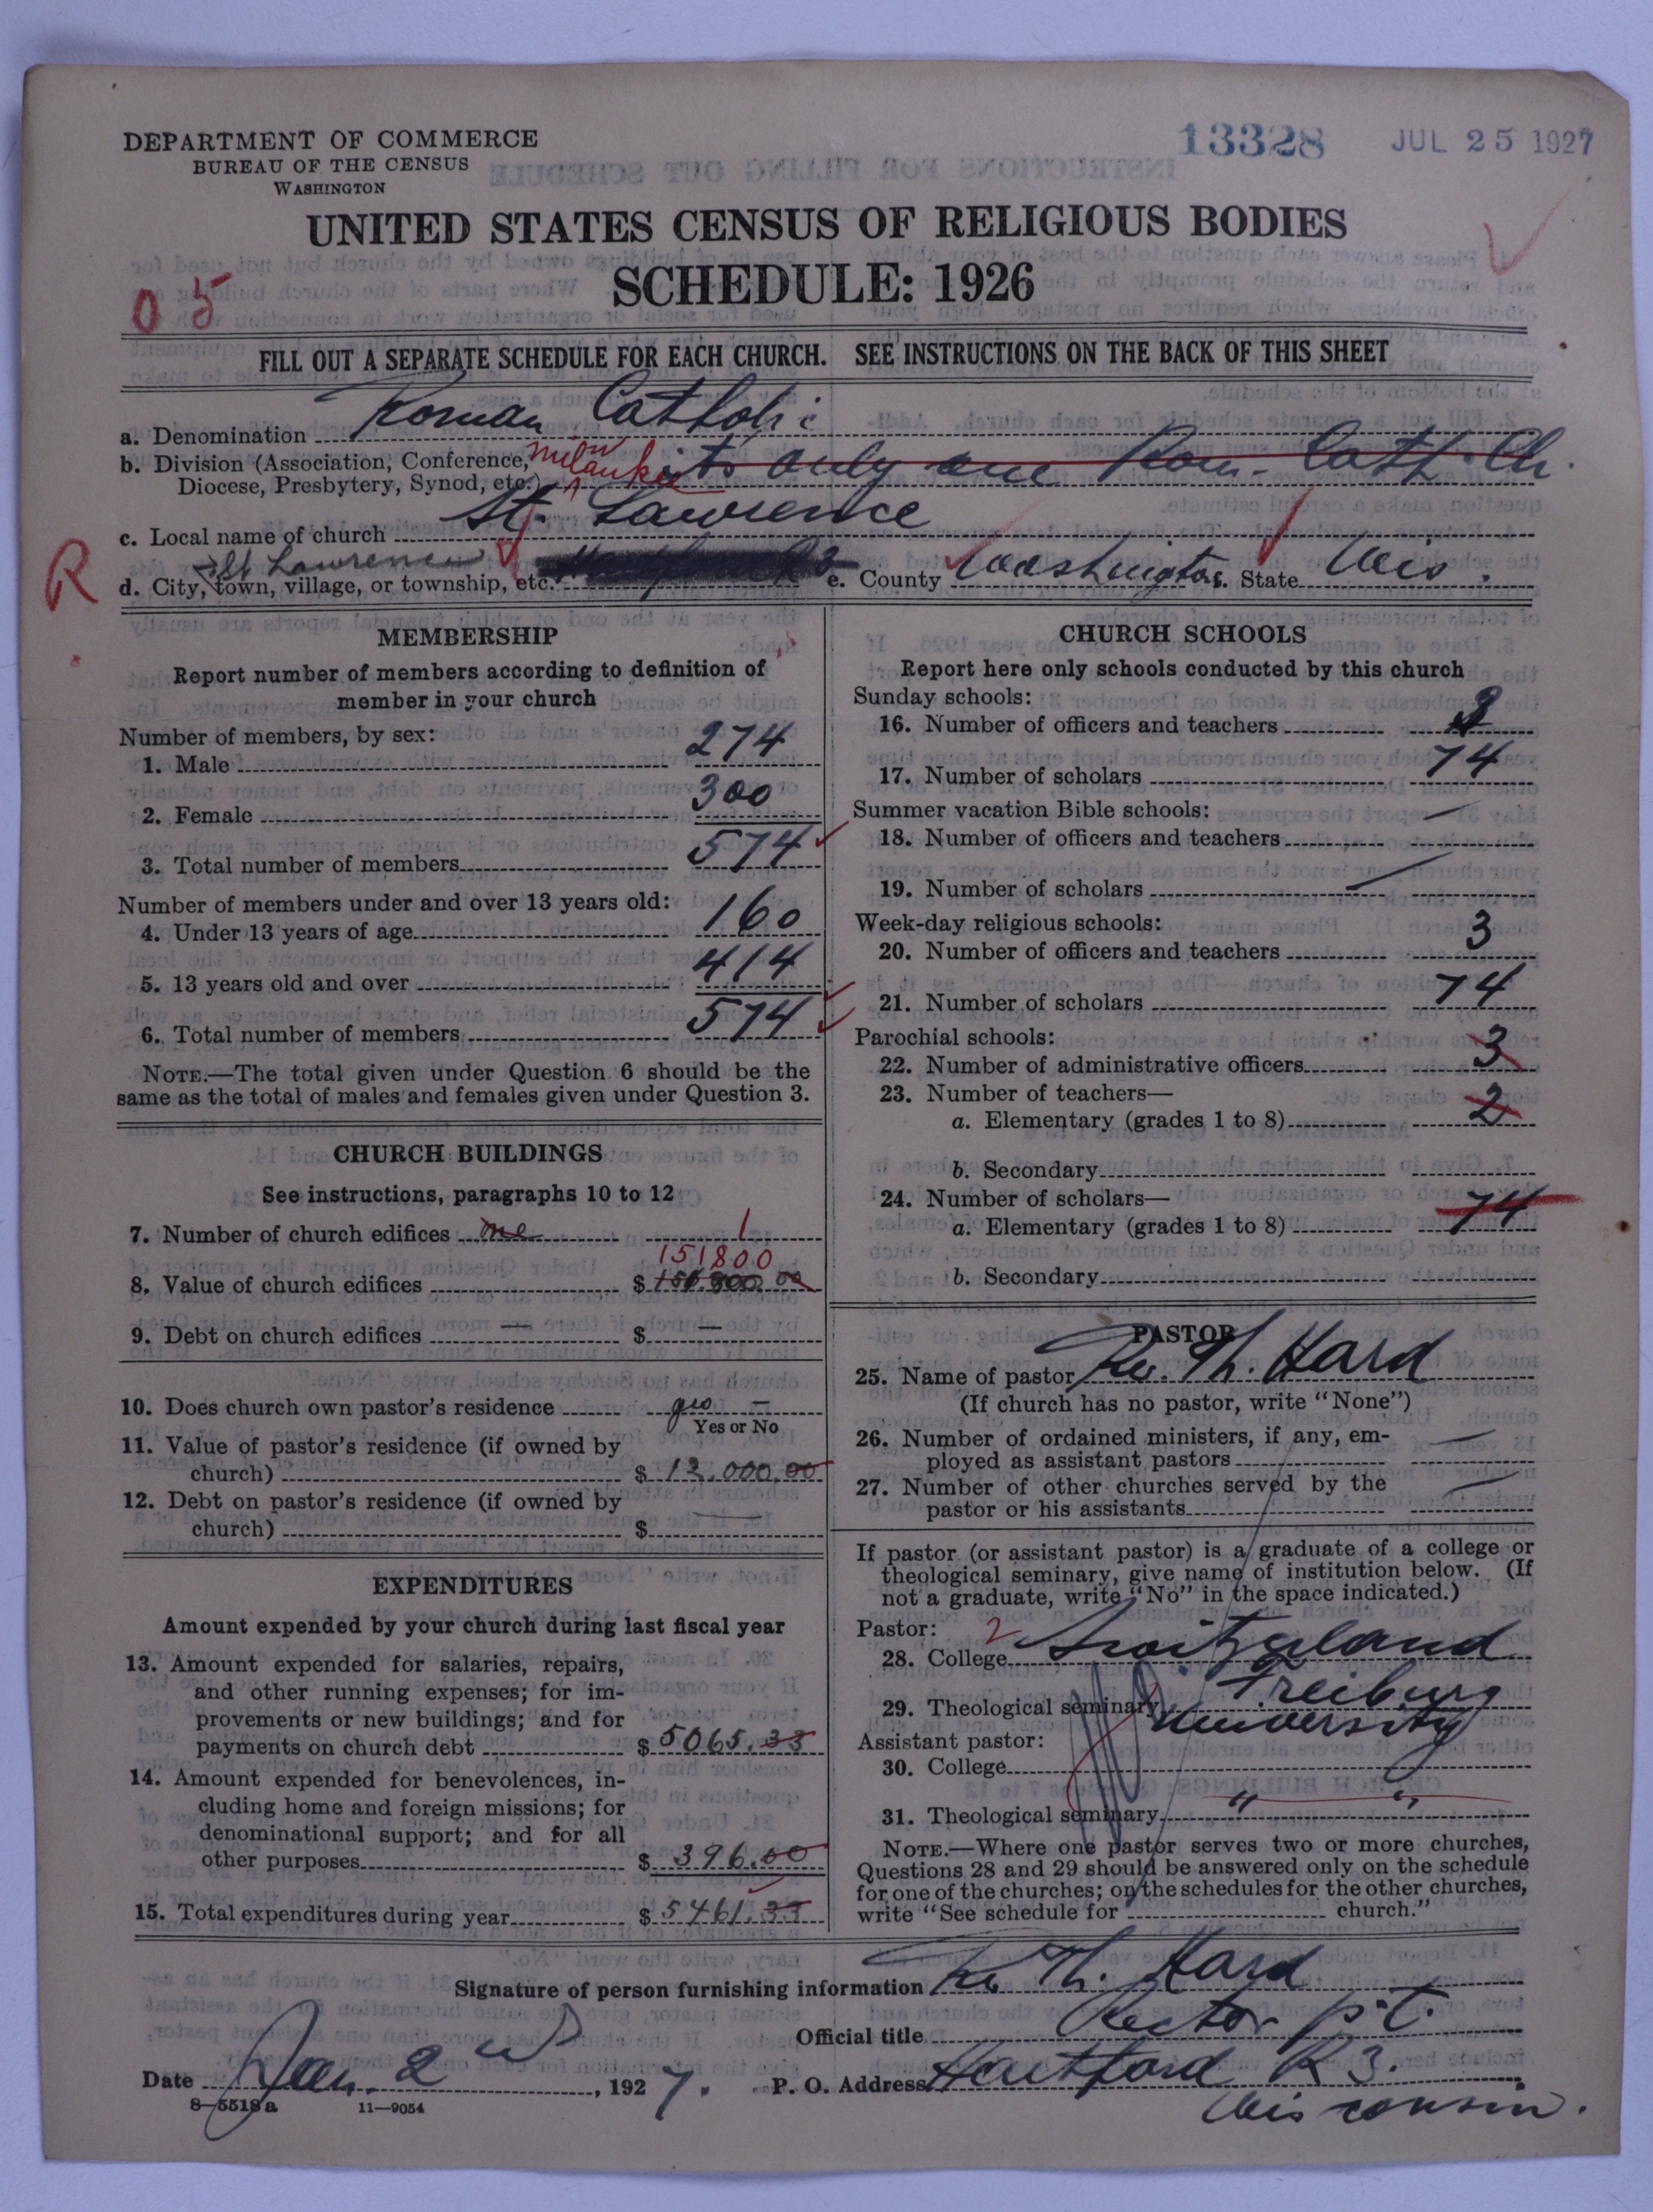 DEPARTMENT OF COMMERCE
BUREAU OF THE CENSUS
WASHINGTON
13328 JUL 25 1927
UNITED STATES CENSUS OF RELIGIOUS BODIES
SCHEDULE: 1926
05
FILL OUT A SEPARATE SCHEDULE FOR EACH CHURCH. SEE INSTRUCTIONS ON THE BACK OF THIS SHEET
a. Denomination Roman Catholic
b. Division (Association, Conference, Diocese, Presbytery, Synod, etc.) Milwaukee its only one Rom. Cath. Ch.
c. Local name of church St. Lawrence
R
d. City, town, village, or township, etc. St Lawrence e. County Washington f. State Wis.
MEMBERSHIP
Report number of members according to definition of
member in your church
Number of members, by sex:
1. Male 274
2. Female 300
3. Total number of members 574
Number of members under and over 13 years old:
4. Under 13 years of age 160
5. 13 years old and over 414
6. Total number of members 574
NOTE.—The total given under Question 6 should be the
same as the total of males and females given under Question 3.
CHURCH BUILDINGS
See instructions, paragraphs 10 to 12
7. Number of church edifices one 1
151800
8. Value of church edifices $
9. Debt on church edifices — $ —
10. Does church own pastor's residence yes —
Yes or No
11. Value of pastor's residence (if owned by
church) $ 12.000.00
12. Debt on pastor's residence (if owned by
church) $
EXPENDITURES
Amount expended by your church during last fiscal year
13. Amount expended for salaries, repairs,
and other running expenses; for im-
provements or new buildings; and for
payments on church debt $ 5065.33
14. Amount expended for benevolences, in-
cluding home and foreign missions; for
denominational support; and for all
other purposes $ 396.00
15. Total expenditures during year $ 5461.33
CHURCH SCHOOLS
Report here only schools conducted by this church
Sunday schools:
16. Number of officers and teachers 3
17. Number of scholars 74
Summer vacation Bible schools: —
18. Number of officers and teachers
19. Number of scholars —
Week-day religious schools:
20. Number of officers and teachers 3
21. Number of scholars 74
Parochial schools:
22. Number of administrative officers 3
23. Number of teachers—
a. Elementary (grades 1 to 8) 2
b. Secondary
24. Number of scholars—
a. Elementary (grades 1 to 8) 74
b. Secondary
PASTOR
25. Name of pastor Rev. Th. Hard
(If church has no pastor, write "None")
26. Number of ordained ministers, if any, em-
ployed as assistant pastors —
27. Number of other churches served by the
pastor or his assistants —
If pastor (or assistant pastor) is a graduate of a college or
theological seminary, give name of institution below. (If
not a graduate, write "No" in the space indicated.)
Pastor: 2
28. College Switzerland
29. Theological seminary Freiburg
University
Assistant pastor:
30. College
31. Theological seminary " "
NOTE.—Where one pastor serves two or more churches,
Questions 28 and 29 should be answered only on the schedule
for one of the churches; on the schedules for the other churches,
write "See schedule for church."
Signature of person furnishing information Rev Th. Hard
Official title Rector p.t.
Date Jan. 2nd, 1927. P. O. Address Hartford R 3.
Wisconsin.
8—5518a 11—9054